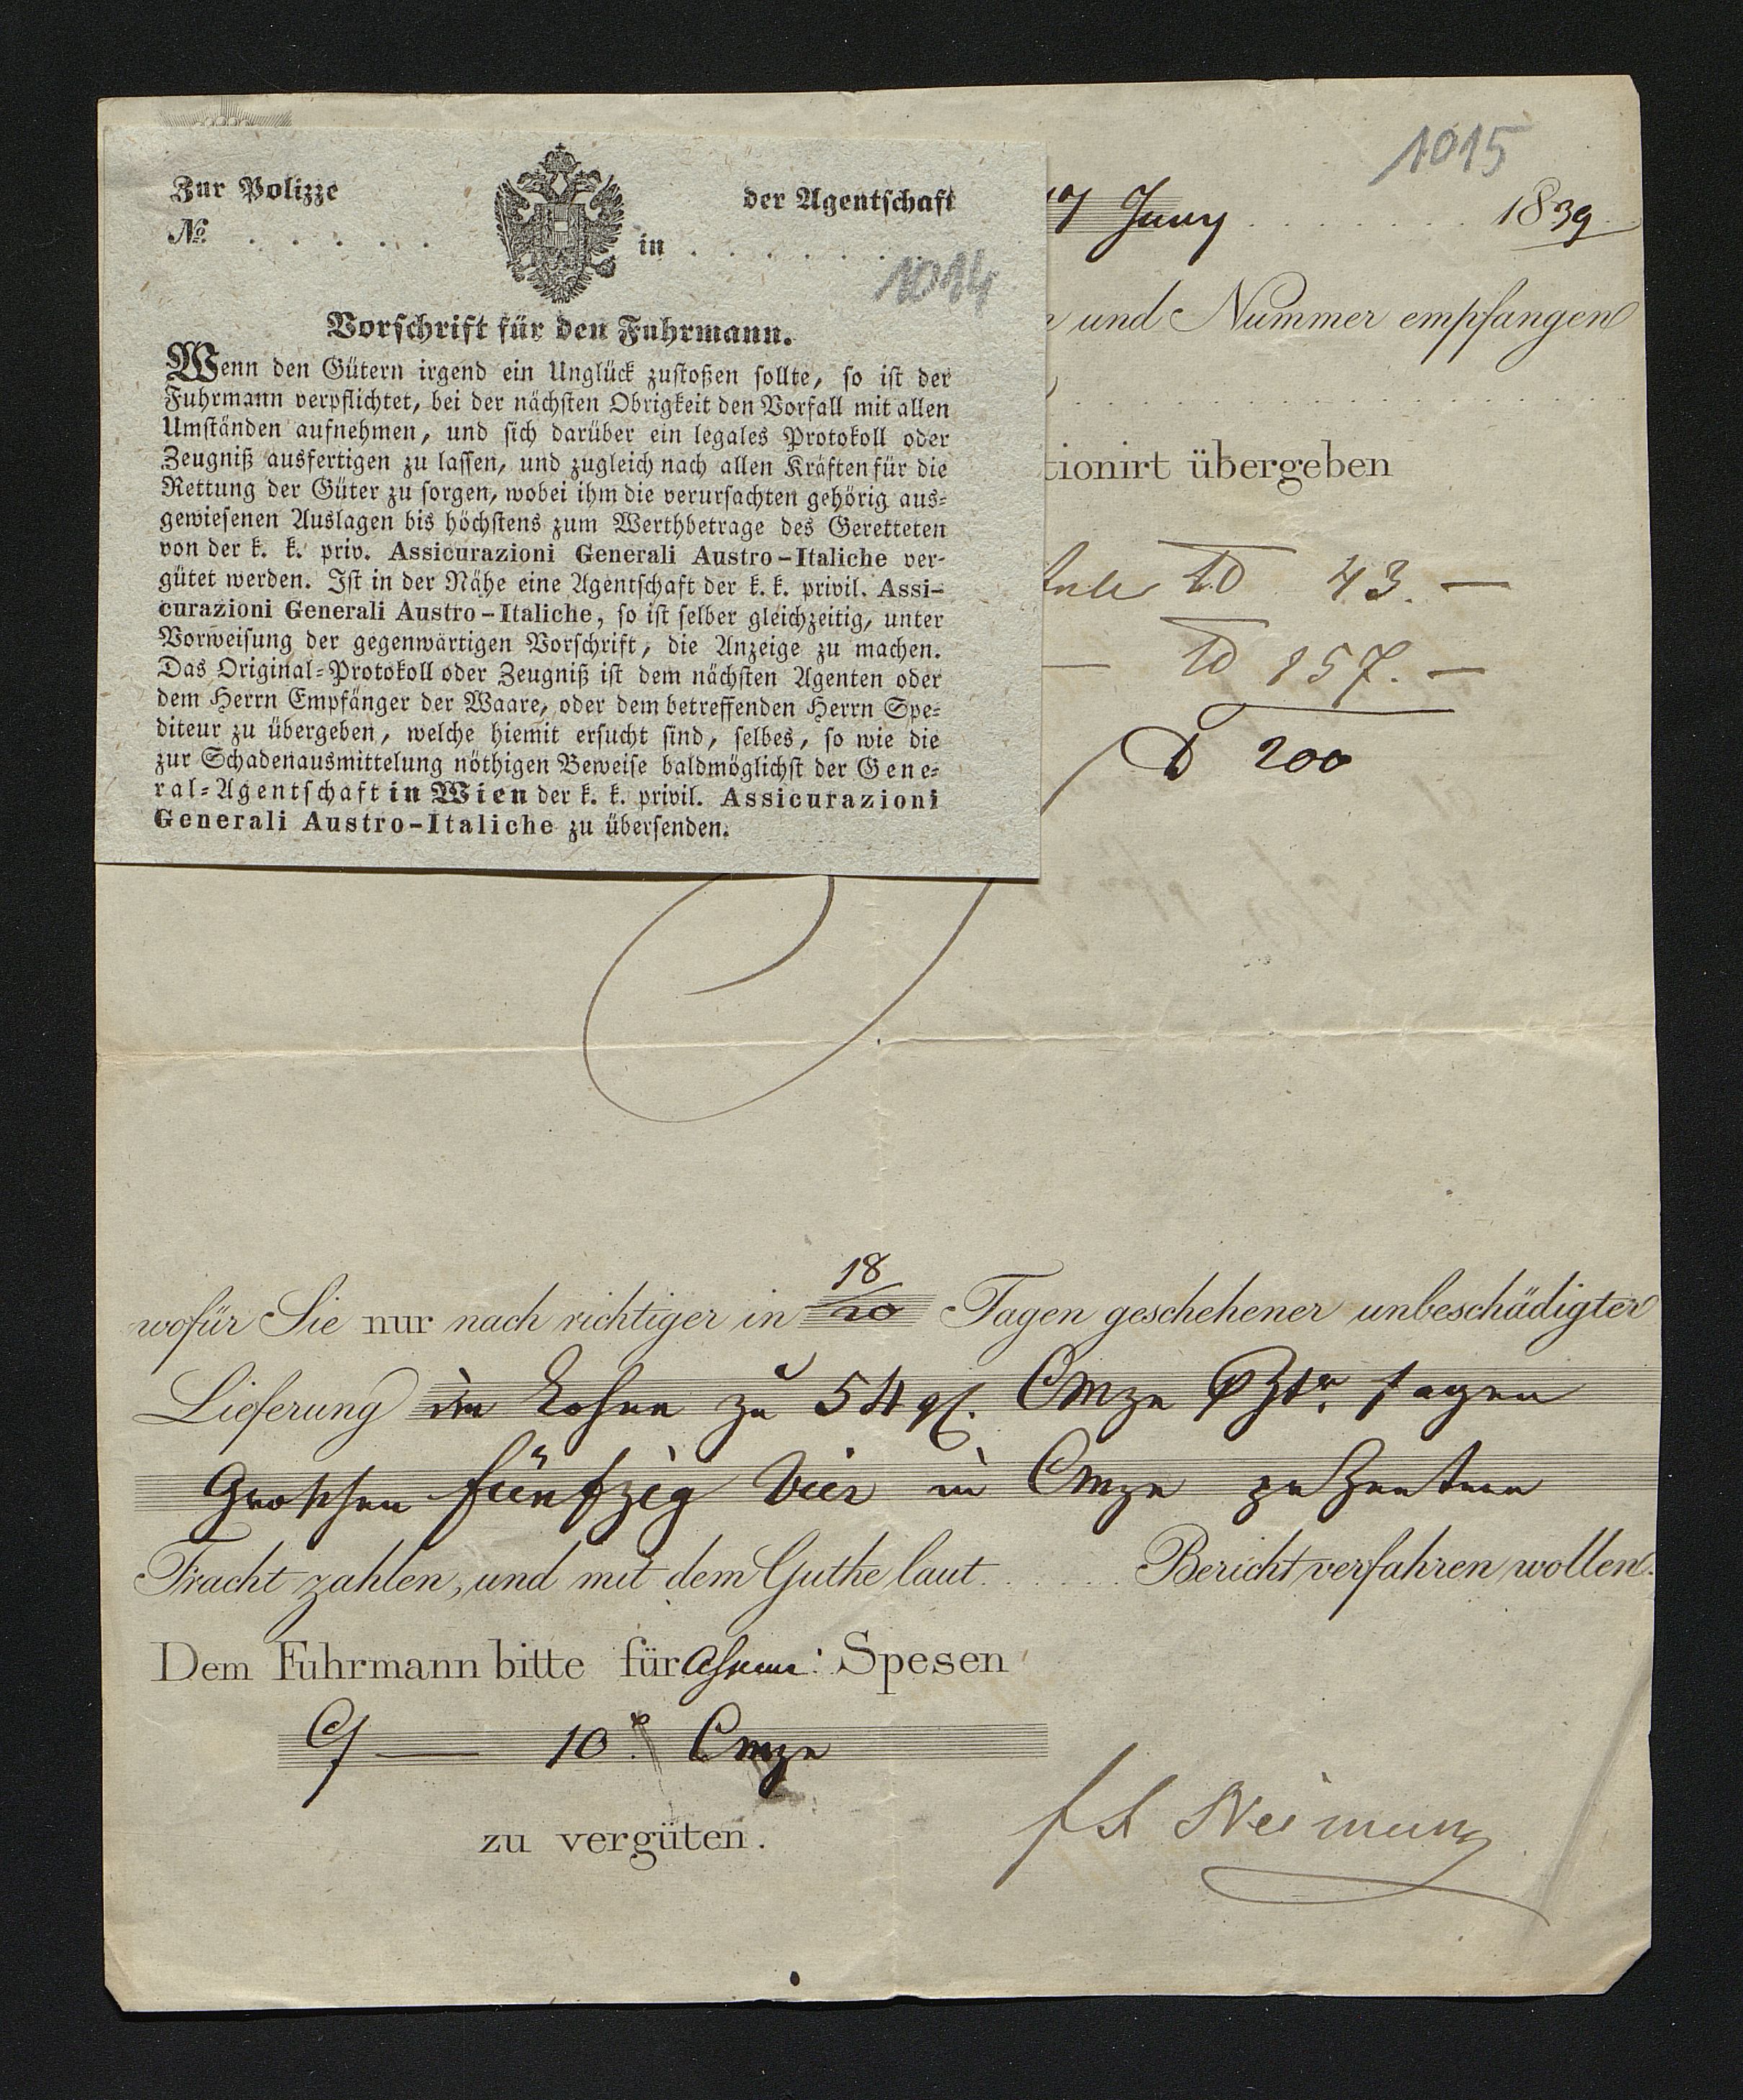 1015
Zur Polizze
der Agentschaft
№. . . . . .
in . . . . . . .
1014
Vorschrift für den Fuhrmann.
Wenn den Gütern irgend ein Unglück zustoßen sollte, so ist der
Fuhrmann verpflichtet, bei der nächsten Obrigkeit den Vorfall mit allen
Umständen aufnehmen, und sich darüber ein legales Protokoll oder
Zeugniß ausfertigen zu lassen, und zugleich nach allen Kräften für die
Rettung der Güter zu sorgen, wobei ihm die verursachten gehörig aus-
gewiesenen Auslagen bis höchstens zum Werthbetrage des Geretteten
von der k. k. priv. Assicurazioni Generali Austro-Italiche ver-
gütet werden. Ist in der Nähe eine Agentschaft der k. k. privil. Assi-
curazioni Generali Austro-Italiche, so ist selber gleichzeitig, unter
Vorweisung der gegenwärtigen Vorschrift, die Anzeige zu machen.
Das Original-Protokoll oder Zeugniß ist dem nächsten Agenten oder
dem Herrn Empfänger der Waare, oder dem betreffenden Herrn Spe-
diteur zu übergeben, welche hiemit ersucht sind, selbes, so wie die
zur Schadenausmittelung nöthigen Beweise baldmöglichst der Gene-
ral-Agentschaft in Wien der k. k. privil. Assicurazioni
Generali Austro-Italiche zu übersenden.
17 Juny . . . . . . . 1839
und Nummer empfangen
tionirt übergeben
43. —
157. —
200
18
wofür Sie nur nach richtiger in 20 Tagen geschehener unbeschädigter
Lieferung im Lohne zu 54 Cmze sagen
Groschen fünfzig Vier in Cmze pr Zentner
Fracht zahlen, und mit dem Guthe laut . . . . . Bericht verfahren wollen.
Dem Fuhrmann bitte für Spesen
10 Cmze
zu vergüten.